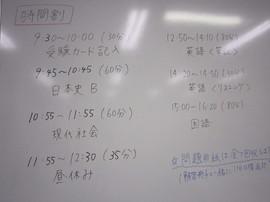 時間割
9:30～10:00 (30分)
受験カード記入
9:45～10:45 (60分)
日本史B
10:55～11:55 (60分)
現代社会
11:55～12:30 (35分)
昼休み
12:50～14:10 (80分)
英語(筆記)
英語(リスニング)
15:00～16:20 (80分)
国語